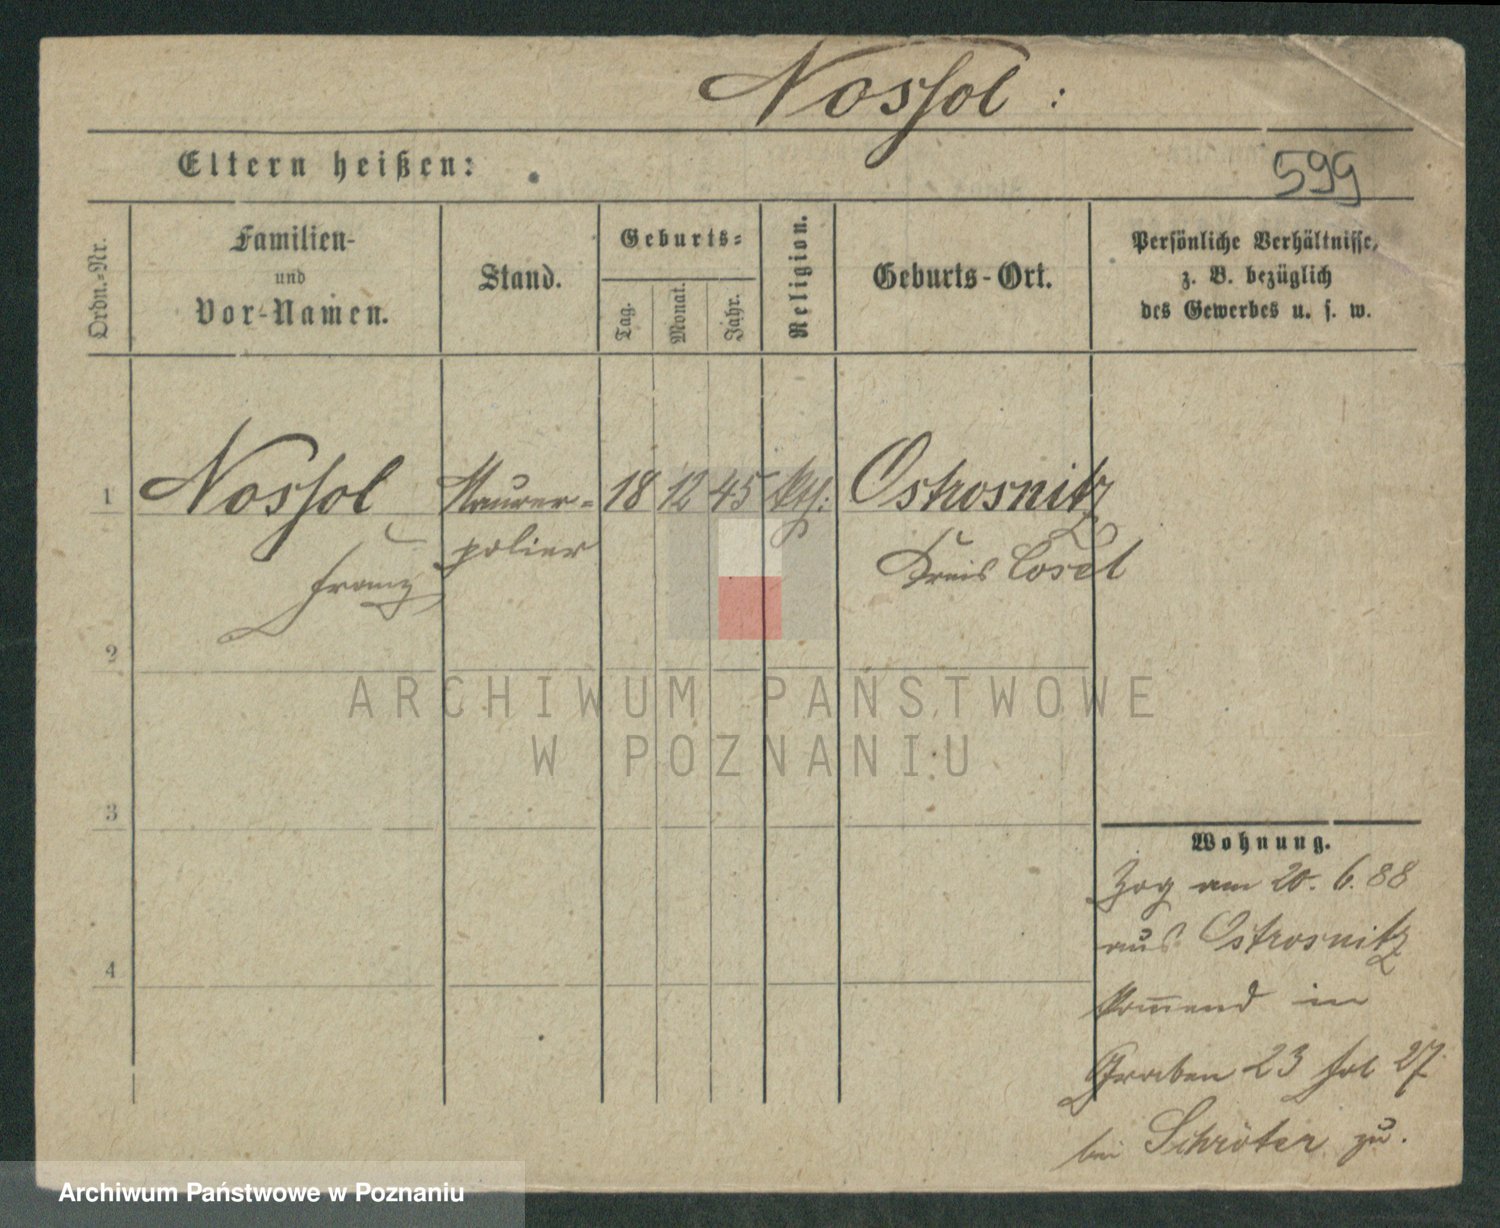 Nossol :
Eltern heißen:
599
Ordn.-Nr.
Familien-
und
Vor-Namen.
Stand.
Geburts-
Tag.
Monat.
Jahr.
Religion.
Geburts-Ort.
Persönliche Verhältnisse,
z. B. bezüglich
des Gewerbes u. s. w.
1 Nossol Maurer- 18 12 45 kth. Ostrosnitz
Franz polier Kreis Cosel
2
3
4
ARCHIWUM PAŃSTWOWE
W POZNANIU
Wohnung.
Zog am 20. 6. 88
aus Ostrosnitz
kommend in
Graben 23 fol 27
bei Schröter zu.
Archiwum Państwowe w Poznaniu